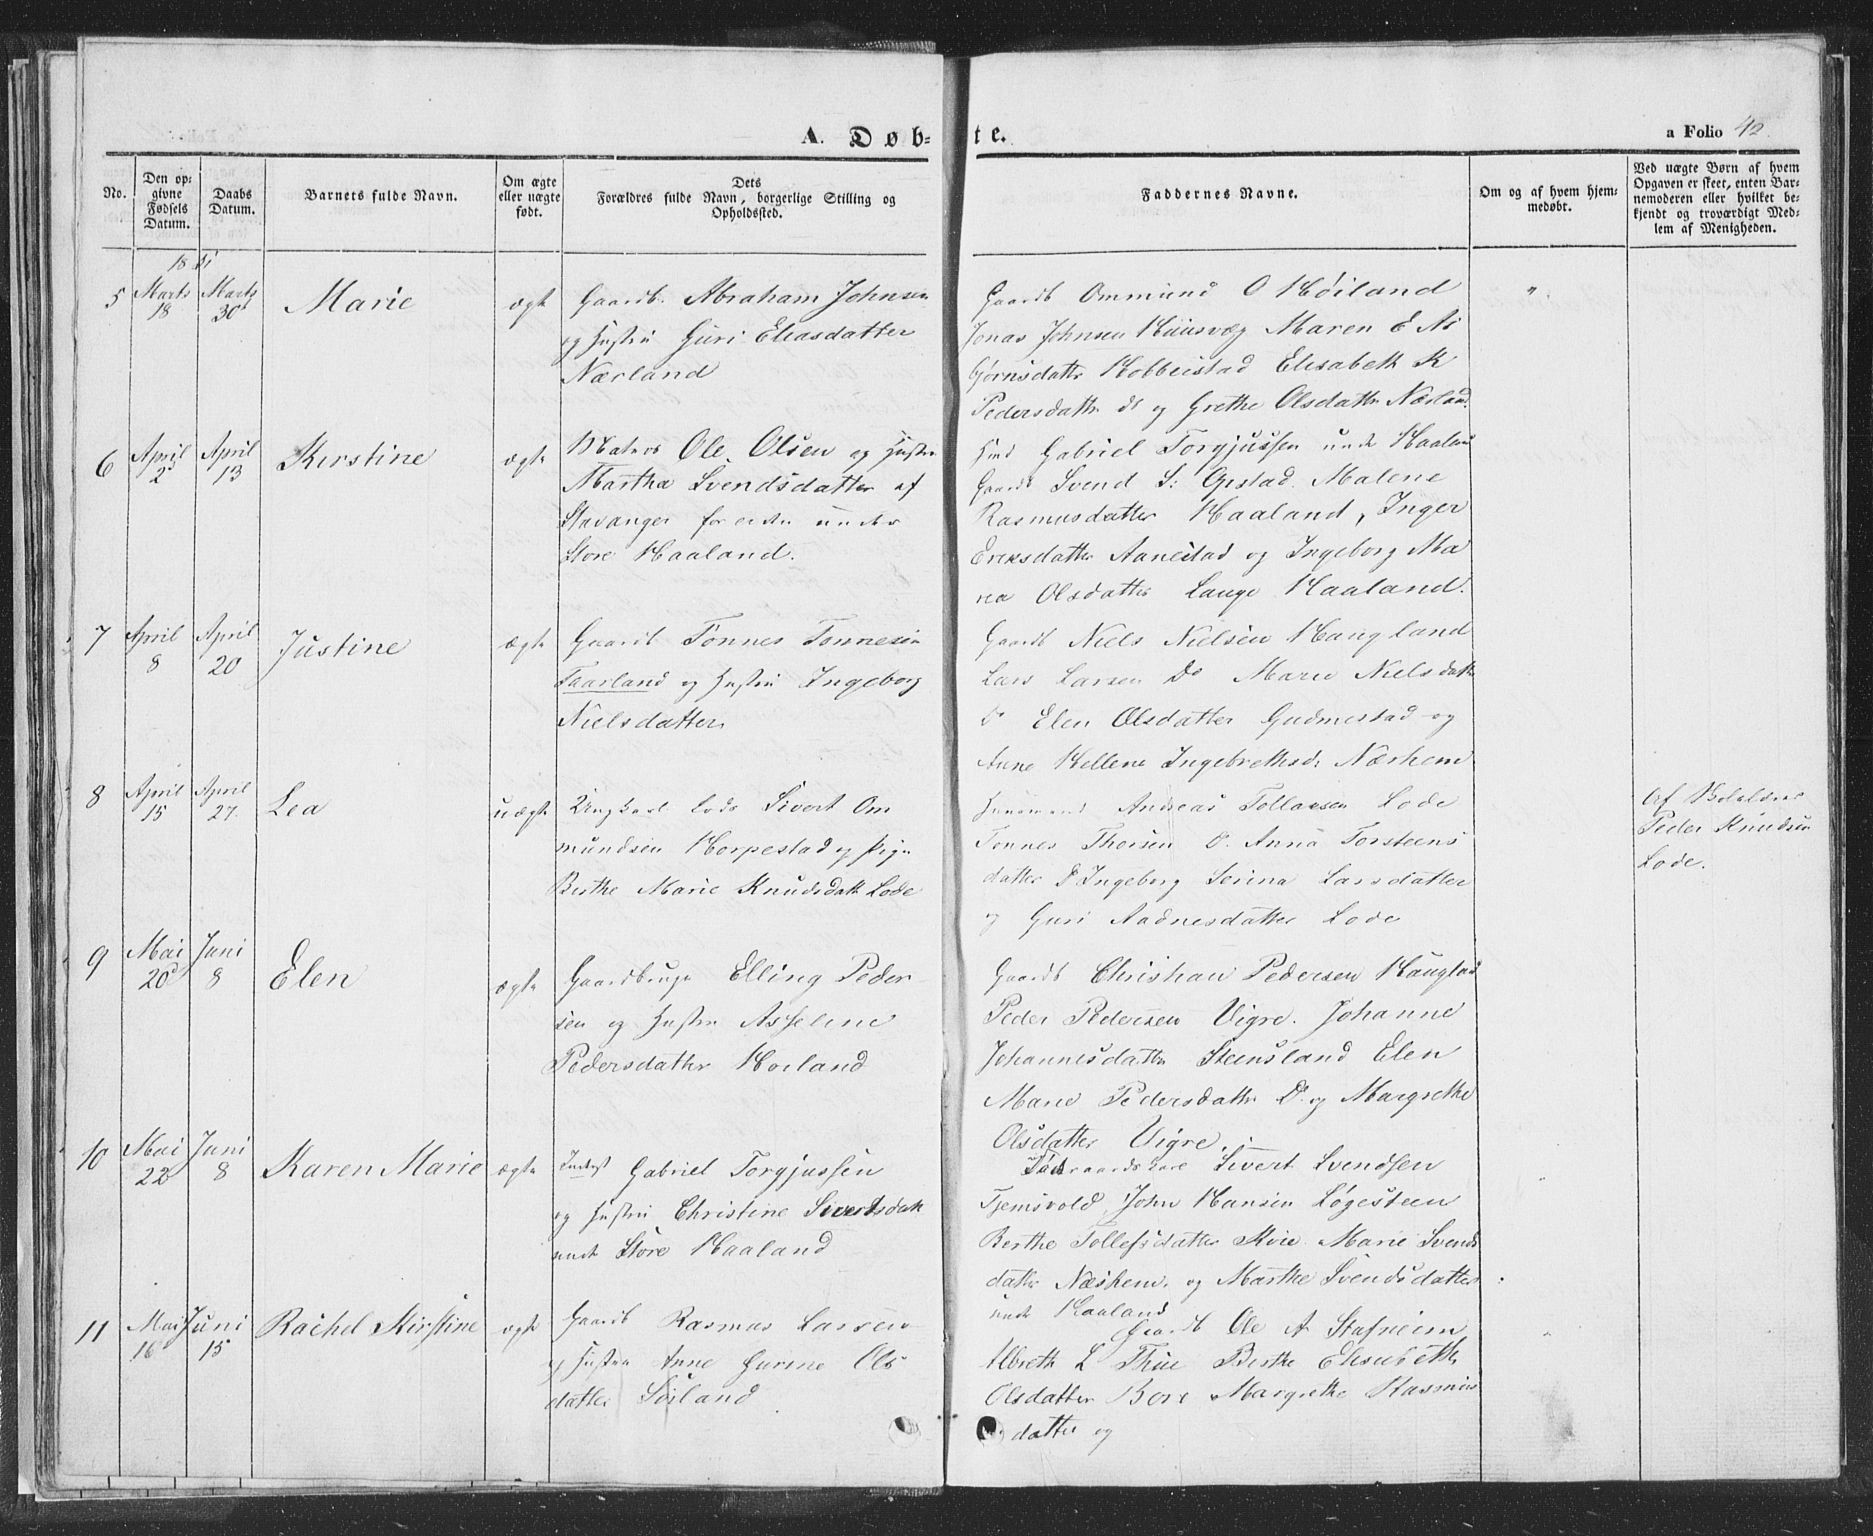 A. Døb=
te.
a Folio 42.
No.
Den op=
givne
Fødsels
Datum.
Daabs
Datum.
Barnets fulde Navn.
Om ægte
eller uægte
født.
Dets
Forældres fulde Navn, borgerlige Stilling og
Opholdssted.
Faddernes Navne.
Om og af hvem hjem=
medøbt.
Ved uægte Børn af hvem
Opgaven er skeet, enten Bar=
nemoderen eller hvilket be=
kjendt og troværdigt Med=
lem af Menigheden.
18 51
5 Marts 18 Marts 30 Marie ægte
Gaardb. Abraham Johnsen
og Hustru Guri Eliasdatter
Nærland
Gaardb Ommund O Høiland
Jonas Johnsen Huusvæg Maren E As
bjørnsdattr Hobberstad Elisabeth K
Pedersdattr do og Grethe Olsdattr Nærland
"
6 April 2 April 13 Kirstine ægte
Matros Ole Olsen og Hustru
Martha Svendsdatter af
Stavanger for under
Store Haaland.
Gabriel Torgjussen under Haaland
Gaardb Svend S: Opstad. Malene
Rasmusdatter Haaland, Inger
Eriksdatter Aanestad og Ingeborg Ma
ria Olsdatter Lange Haaland.
7 April 8 April 20 Justine ægte
Gaardb Tønnes Tønnesen
Taarland og Hustru Ingeborg
Nielsdatter
Gaardb Niels Nielsen Haugland
Lars Larsen Do Marie Nielsdattr
Do Elen Olsdatter Gudmestad og
Anne Hellene Ingebrethsdr Nærhem
8 April 15 April 27 Lea uægte
Ungkarl Lods Sivert Om
mundsen Horpestad og Pige
Berthe Marie Knudsdattr Lode
Huusmand Andreas Tollaksen Lode
Tønnes Thorsen Do. Anna Torsteens
datter Do Ingeborg Serina Larsdatter
og Guri Aadnesdatter Lode
Peder Knudsen
Lode.
9 Mai 20 Juni 8 Elen ægte
Gaardbruger Elling Peder
sen og Hustru Asseline
Pedersdatter Horland
Gaardb Christian Pedersen Haugland
Peder Pedersen Vigre. Johanne
Johannesdattr Steensland Elen
Marie Pedersdattr Do. og Margrethe
Olsdatter Vigre.
10 Mai 22 Juni 8 Karen Marie ægte
Inderst Gabriel Torgjussen
og Hustru Christine Sivertsdattr
undr Store Haaland
Sivert Svendsen
Tjemsvold John Hansen Løgesteen
Berthe Tollefsdatter Kvie Marie Svends
datter Næshem, og Marthe Svendsdatter
undr Haaland
11 Mai 16 Juni 15 Rachel Kirstine ægte
Gaardb Rasmus Larsen
og Hustru Anne Gurine Ols
datter Søiland
Gaardb Ole A Stafneim
Albreth L Thue Berthe Elisabeth
Olsdatter Bore Margrethe Rasmus
datter og